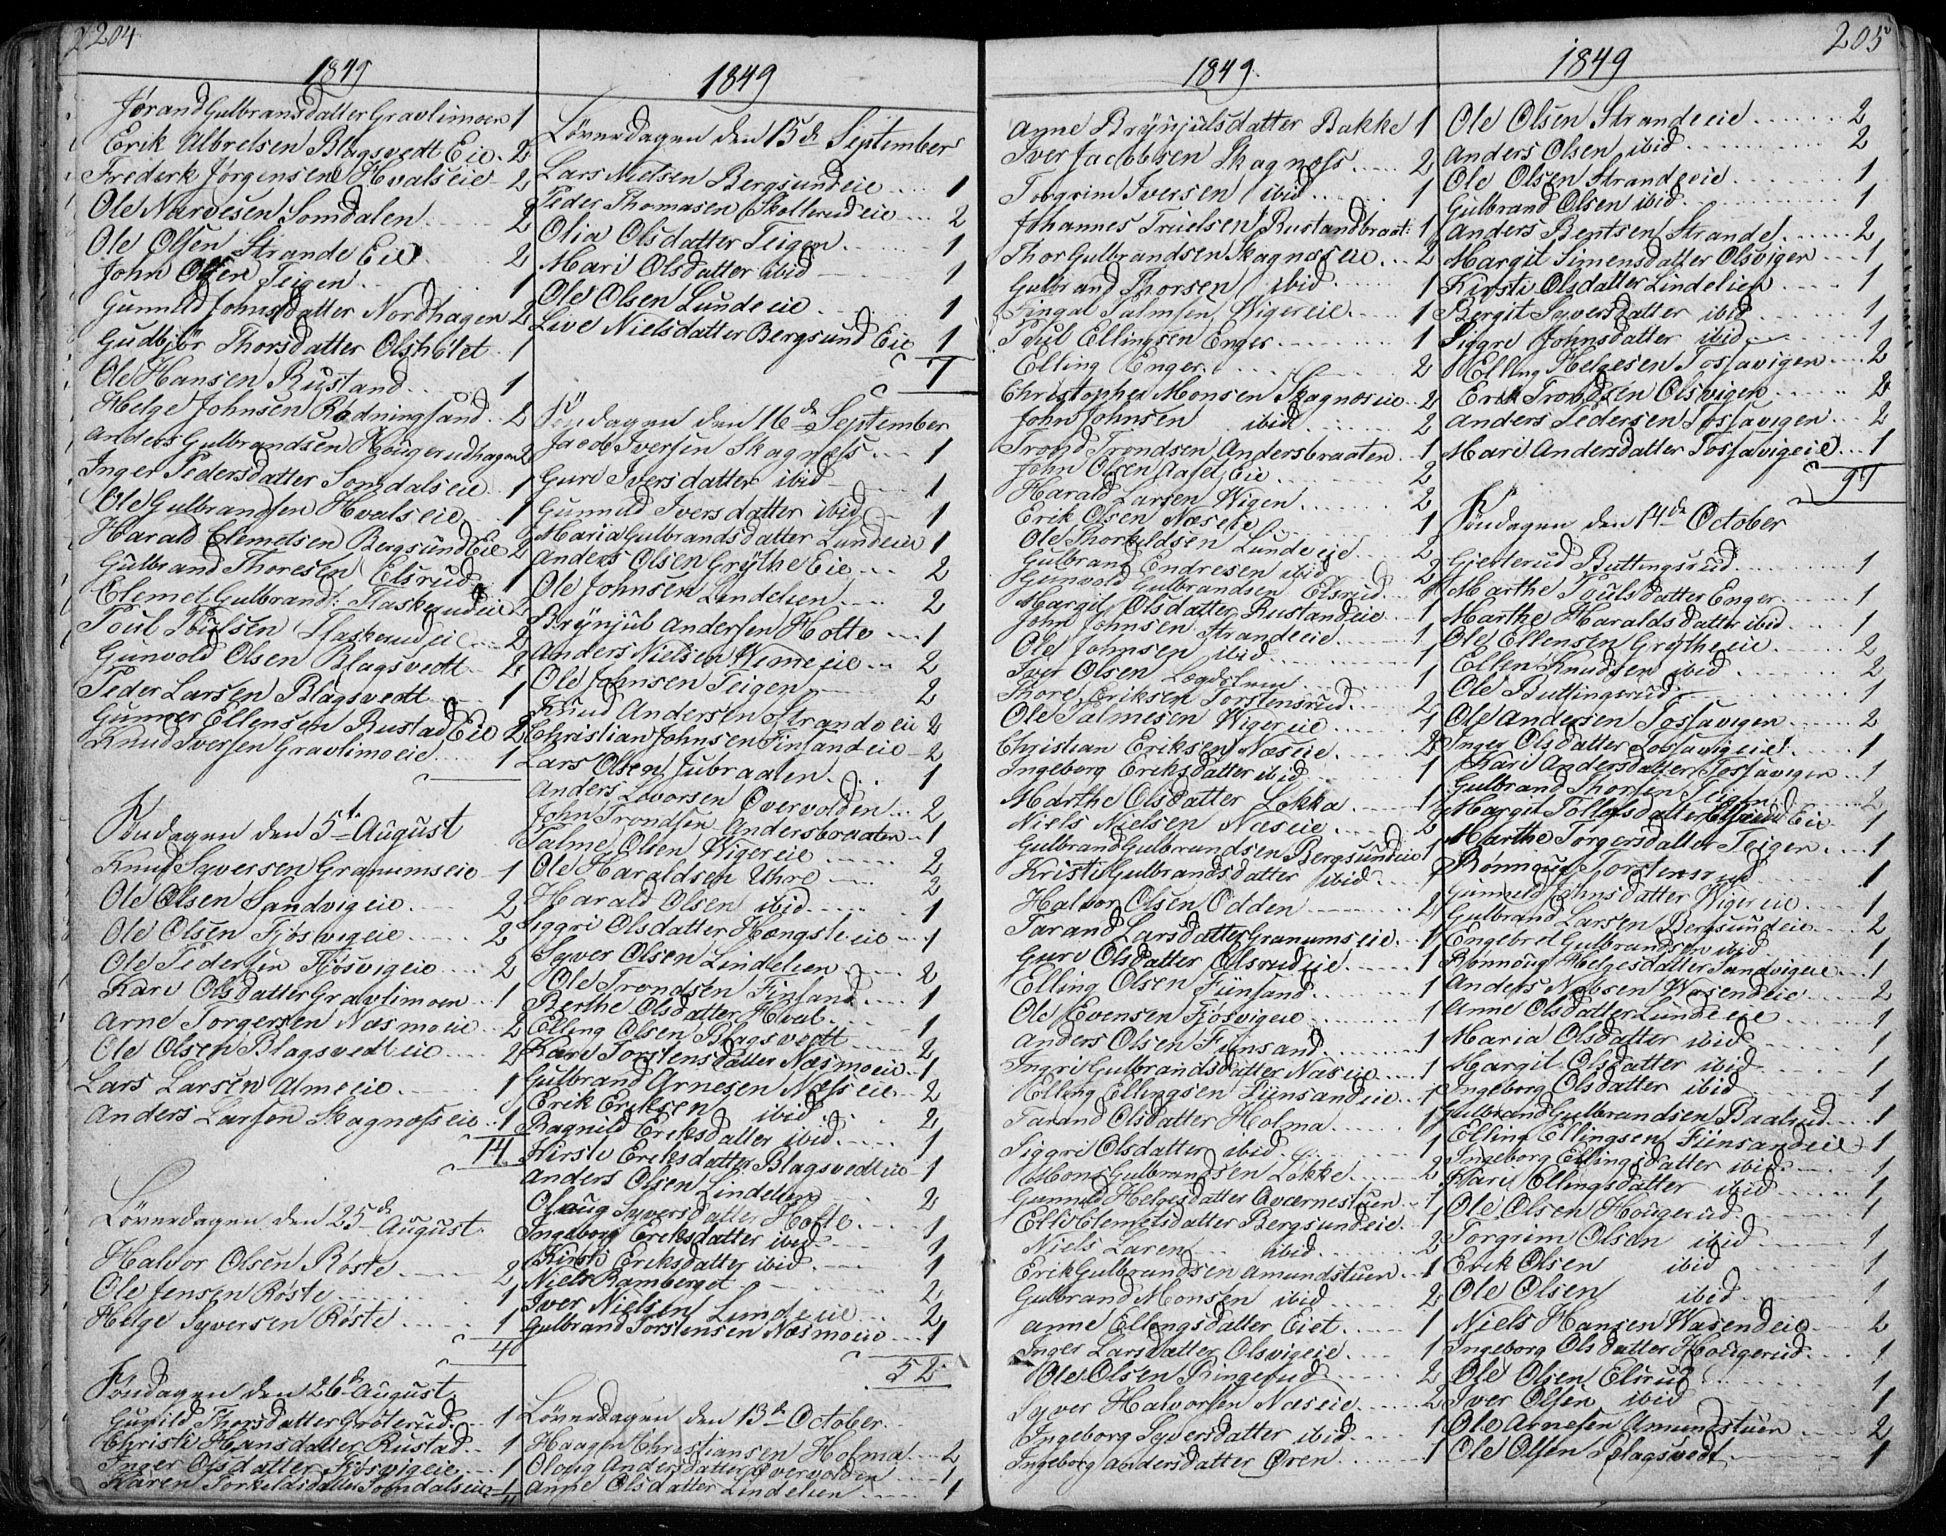 204
1849
Jörand Gulbransdatter Gravlimoen 1
Erik Albretsen Blagsvedt Eie 2
Frederk Jørgensen Hvalseie 2
Ole Narvesen Somdalen 2
Ole Olsen Strande Eie 2
John Olsen Teigen 1
Gunnild Johnsdatter Nordhagen 2
Gudbjör Thorsdatter Olshølet 1
Ole Hansen Rustand 1
Helge Johnsen Rødningsand 2
Anders Gulbrandsen Hougerudhagen 2
Inger Pedersdatter Somdalseie 1
Ole Gulbrandsen Hvalseie 1
Harald Clemetsen Bergsund Eie 2
Gulbrand Thoresen Elsrud 1
Clemet Gulbrand: Flaskerudeie 2
Poul Poulsen Flaskerudeie 2
Gunvold Olsen Blagsvedt 2
Peder Larsen Blagsvedt 1
Gunner Ellensen Rustad Eie 2
Knud Iversen Gravlimoeie 1
Søndagen den 5te August
Knud Syversen Granumseie 1
Ole Olsen Sandvigeie 2
Ole Olsen Fjösvigeie 2
Ole Pedersen Fjösvigeie 2
Kari Olsdatter Gravlimoen 1
Arne Torgersen Næsmoeie 2
Ole Olsen Blagsvedteie 2
Lars Larsen Almeeie 1
Anders Larsen Skagnæsseie 1
14
Löverdagen den 25de August
Halvor Olsen Röste 2
Ole Jensen Röste 1
Helge Syversen Röste 1
4
Søndagen den 26de August
Gunild Thorsdatter Gröterud 1
Christi Hansdatter Rustad 1
Inger Olsdatter Fjösvigeie 1
Karen Torkildsdatter Somdalseie 1
4
1849
Löverdagen den 15de September
Lars Nielsen Bergsundeie 1
Peder Thomasen Skollerudeie 2
Olia Olsdatter Teigen 1
Mari Olsdatter ibid 1
Ole Olsen Lundeeie 1
Live Nielsdatter Bergsund Eie 1
7
Söndagen den 16de September
Jacob Iversen Skagnæss 1
Guri Iversdatter ibid 1
Gunnild Iversdatter ibid 1
Maria Gulbrandsdatter Lundeeie 1
Anders Olsen Grÿthe Eie 2
Ole Johnsen Lindelien 2
Brÿnjul Andersen Hotte 1
Anders Nielsen Wemeeie 2
Ole Johnsen Teigen 2
Knud Andersen Strandeeie 2
Christian Johnsen Finsandeie 2
Lars Olsen Jubraaten 1
Anders Levorsen Øvervolden 2
John Trondsen Andersbraaten 1
Palme Olsen Wigereie 2
Ole Haraldsen Uhre 2
Harald Olsen ibid 1
Siggri Olsdatter Hængsleeie 1
Syver Olsen Lindelien 2
Ole Trondsen Finsand 1
Berthe Olsdatter Hval 1
Elling Olsen Blagsvedt 2
Kari Torstensdatter Næsmoeie 1
Gulbrand Arnesen Næsseie 2
Erik Eriksen ibid 2
Ragnild Eriksdatter ibid 1
Kirsti Eriksdatter Blagsvedteie 1
Anders Olsen Lindelien 2
Olaug Syversdatter Hotte 1
Ingeborg Eriksdatter ibid 1
Kirsti Eriksdatter ibid 1
Niels Ramberget 2
Iver Nielsen Lundeeie 2
Gulbrand Torstensen Næsmoeie 1
52
Löverdagen den 13de October
Haagen Christiansen Holma 2
Oloug Andersdatter Øvervolden 1
Anne Olsdatter Lindelien 1
205
1849
Anne Brÿnjulsdatter Bakke 1
Iver Jacobsen Skagnæss 2
Torgrim Iversen ibid 1
Johannes Truelsen Rustandbraat: 1
Thor Gulbrandsen Skagnæseie 2
Gulbrand Thorsen ibid 1
Fingal Palmsen Wigereie 1
Poul Ellingsen Enger 1
Elling Enger 2
Christopher Monsen Skagnæseie 2
John Johnsen ibid 2
Trond Trondsen Andersbraaten 1
John Olsen AaslEie 2
Harald Larsen Wigen 2
Erik Olsen Næseie 1
Ole Thoraldsen Lundeeie 2
Gulbrand Endresen ibid 2
Gunvold Gulbrandsen Elsrud
Margit Olsdatter Rustandeie 1
John Johnsen Strandeeie 1
Ole Johnsen ibid 1
Iver Olsen Lægdstuen 1
Thore Eriksen Torstensrud 2
Ole Palmesen Wigereie 1
Christian Eriksen Næseie 2
Ingeborg Eriksdatter ibid 1
Marthe Olsdatter Løkka 1
Niels Nielsen Næseie 2
Gulbrand Gulbrandsen Bergsundeie 1
Kristi Gulbrandsdatter ibid 1
Halvor Olsen Odden 2
Tarand Larsdatter Granumseie 1
Guri Olsdatter Olsrudeie 1
Elling Olsen Fiinsand 1
Ole Evensen Fjösvigeie 1
Anders Olsen Fiinsand 1
Ingri Gulbrandsdatter Næseie 1
Elling Ellingsen Fiinsandeie 1
Tarand Olsdatter Holma 1
Siggri Olsdatter ibid 1
Mons Gulbrandsen Løkke 2
Gunnild Helgesdatter Qværnestuen 1
Elli Clemetsdatter Bergsundeie 1
Niels Laren ibid 2
Erik Gulbrandsen Amundstuen 1
Gulbrand Monsen ibid 2
Anne Ellingsdatter Eiet 1
Inger Larsdatter Olsvigeie 1
Ole Olsen Ringerud 2
Syver Halvorsen Næseie 2
Ingeborg Syversdatter ibid 1
Ingeborg Andersdatter Øren 1
1849
Ole Olsen Strandeeie 2
Anders Olsen ibid 2
Ole Olsen Strandeeie 1
Gulbrand Olsen ibid 1
Anders Bentsen Strande 2
Margit Simensdatter Olsvigen 1
Kirsti Olsdatter Lindelien 1
Bergit Syversdatter ibid 1
Siggri Johnsdatter ibid 1
Elling Helgesen Tossavigen 2
Erik Trondsen Olsvigen 2
Anders Pedersen Tossavigen 2
Mari Andersdatter Tossavigeie 1
97
Söndagen den 14de October
Gjerterud Buttingsrud 1
Marthe Poulsdatter Enger 1
Marthe Haraldsdatter ibid 1
Ole Ellensen Grÿtheeie 2
Ellen Knudsen ibid 2
Ole Buttingsrud 1
Ole Andersen Tossavigen 2
Inger Olsdatter Tossavigeie 1
Kari Andersdatter Tossavigen 1
Gulbrand Thorsen Teigen 2
Margit Tollefsdatter Elsrud Eie 1
Marthe Torgersdatter Teigen 1
Rönnoug Torstensrud 1
Gunnild Johnsdatter Wigereie 1
Gulbrand Larsen Bergsundeie 2
Engebret Gulbrandsen ibid 1
Rönnoug Helgesdatter Sandvigeie 1
Anders Nielsen Wasendeie 2
Anne Olsdatter Lundeeie 1
Maria Olsdatter ibid 1
Margit Olsdatter ibid 1
Ingeborg Olsdatter ibid 1
Gulbrand Gulbrandsen Baalrud 1
Elling Ellingsen Fiinsandeie 1
Ingeborg Ellingsdatter ibid 1
Kari Ellingsdatter ibid 1
Ole Olsen Hougerud 1
Torgrim Olsen ibid 1
Erik Olsen ibid 1
Ole Olsen ibid 1
Niels Hansen Wasendeie 2
Ingeborg Olsdatter Hougerud 1
Ole Olsen Elsrud 1
Iver Olsen ibid 1
Ole Arnesen Amundstuen 2
Ole Olsen Blagsvedt 1